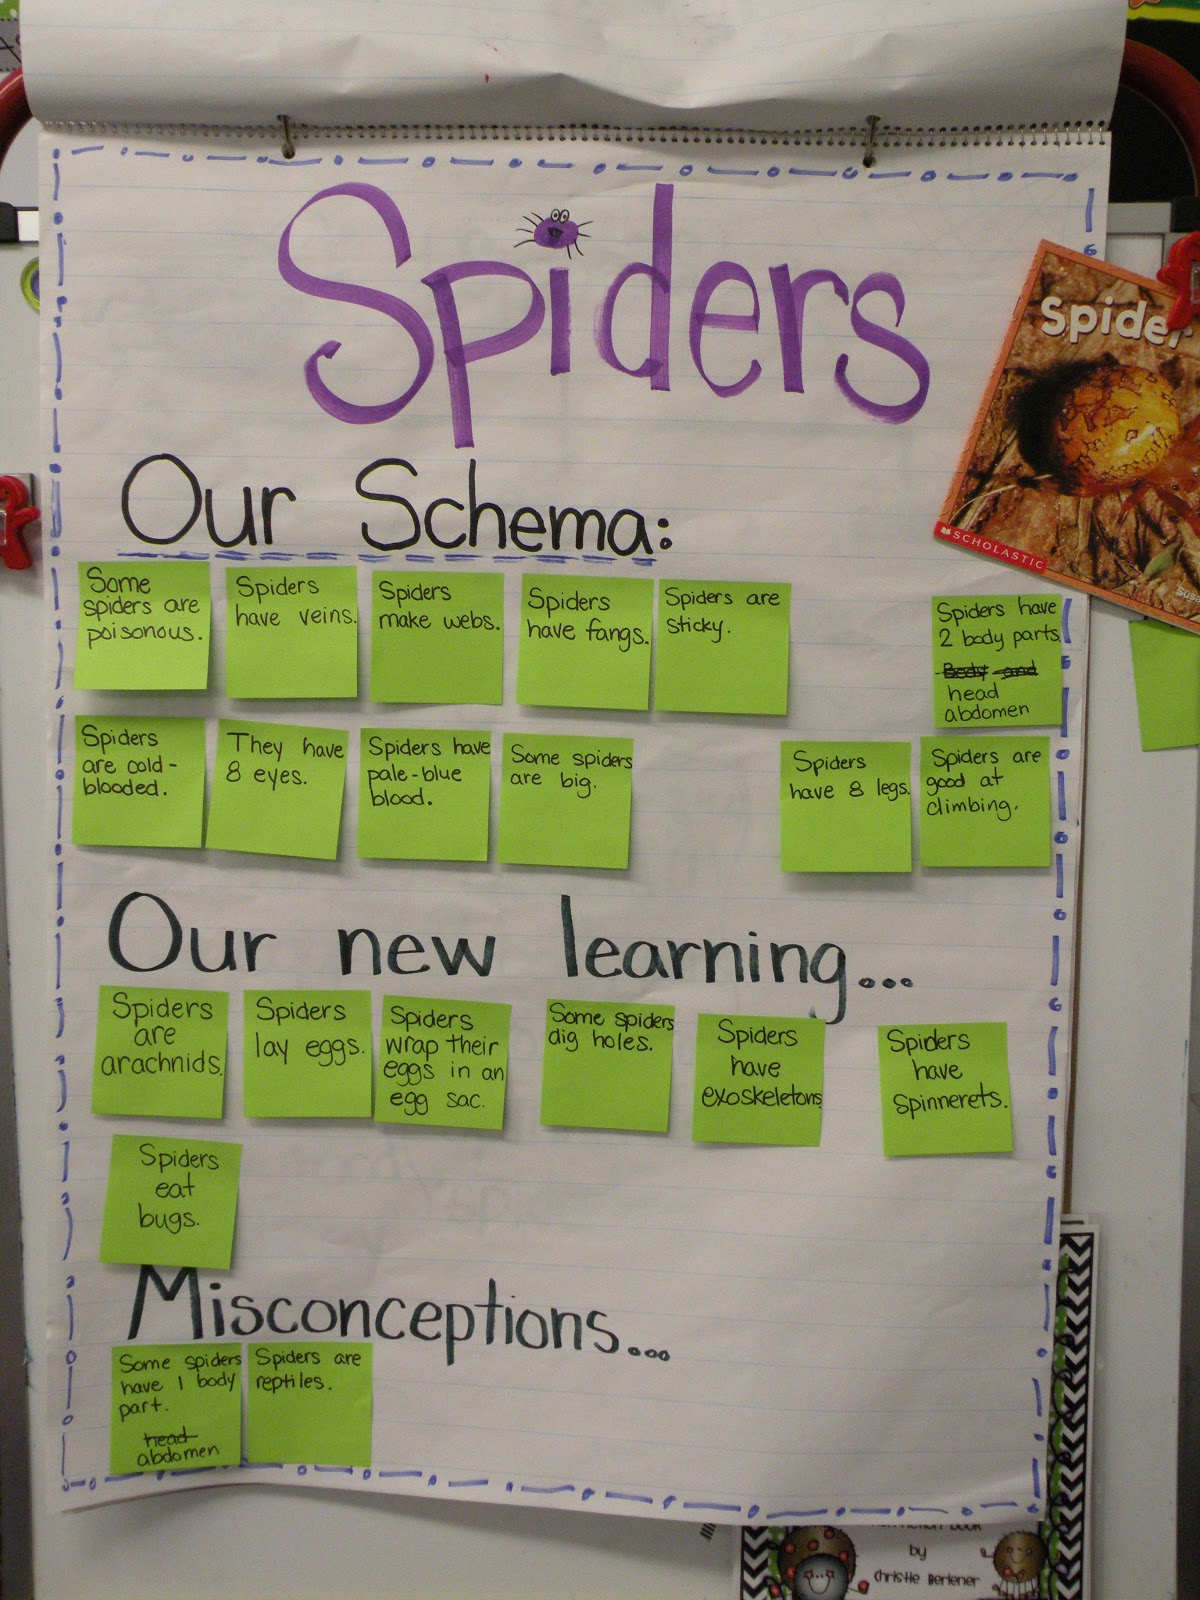 Spiders
Spider
SCHOLASTIC
Our Schema:
Some
spiders are
poisonous.
Spiders
have veins.
Spiders
make webs.
Spiders
have fangs.
Spiders are
sticky.
Spiders have
2 body parts
Body and
head
abdomen
Spiders
are cold-
blooded.
They have
8 eyes.
Spiders have
pale-blue
blood.
Some spiders
are big.
Spiders
have 8 legs.
Spiders are
good at
climbing.
Our new learning...
Spiders
are
arachnids.
Spiders
lay eggs.
Spiders
wrap their
eggs in an
egg sac.
Some spiders
dig holes.
Spiders
have
exoskeletons
Spiders
have
spinnerets.
Spiders
eat
bugs.
Misconceptions...
Some spiders
have 1 body
part.
head
abdomen
Spiders are
reptiles.
book
by
Christie Berlener